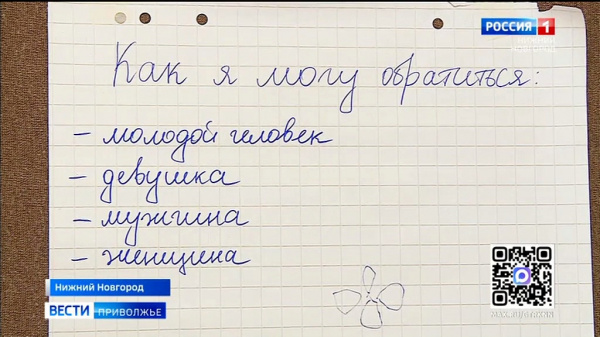 РОССИЯ 1
Как я могу обратиться:
– молодой человек
– девушка
– мужчина
– женщина
Нижний Новгород
ВЕСТИ ПРИВОЛЖЬЕ